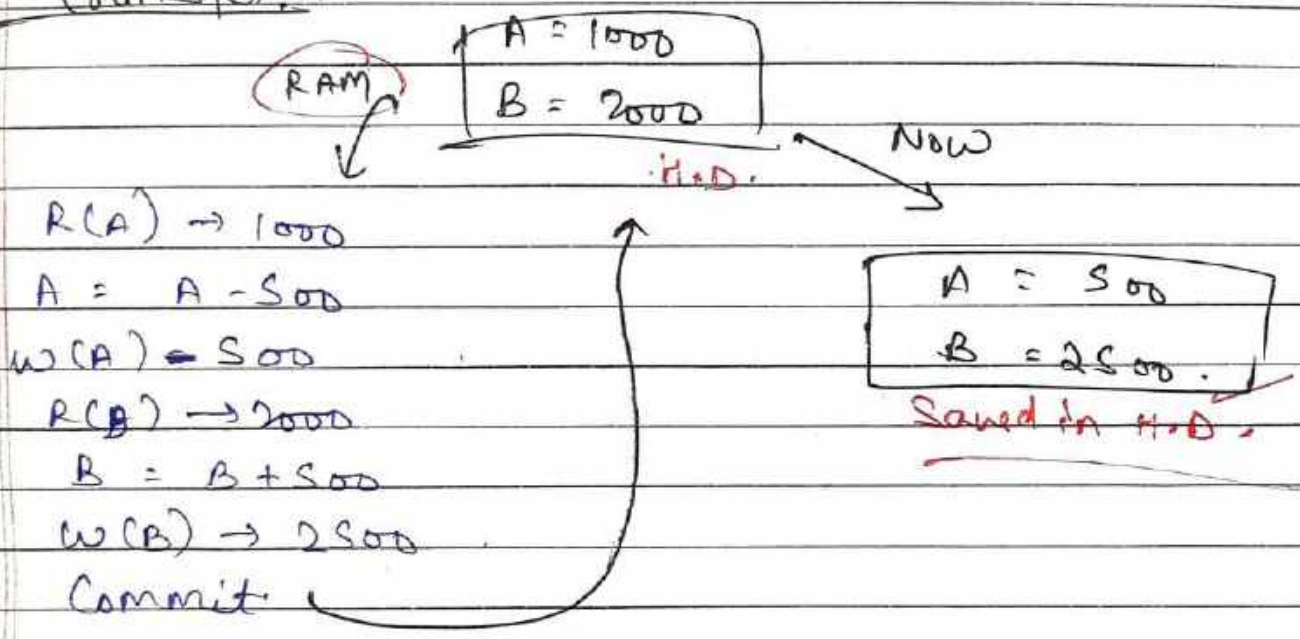 A = 1000
RAM
B = 2000
NOW
H.D.
R(A) → 1000
A = A - 500
W(A) - 500
R(B) → 2000
B = B + 500
W(B) → 2500
Commit.
A = 500
B = 2500.
Saved in H.D.